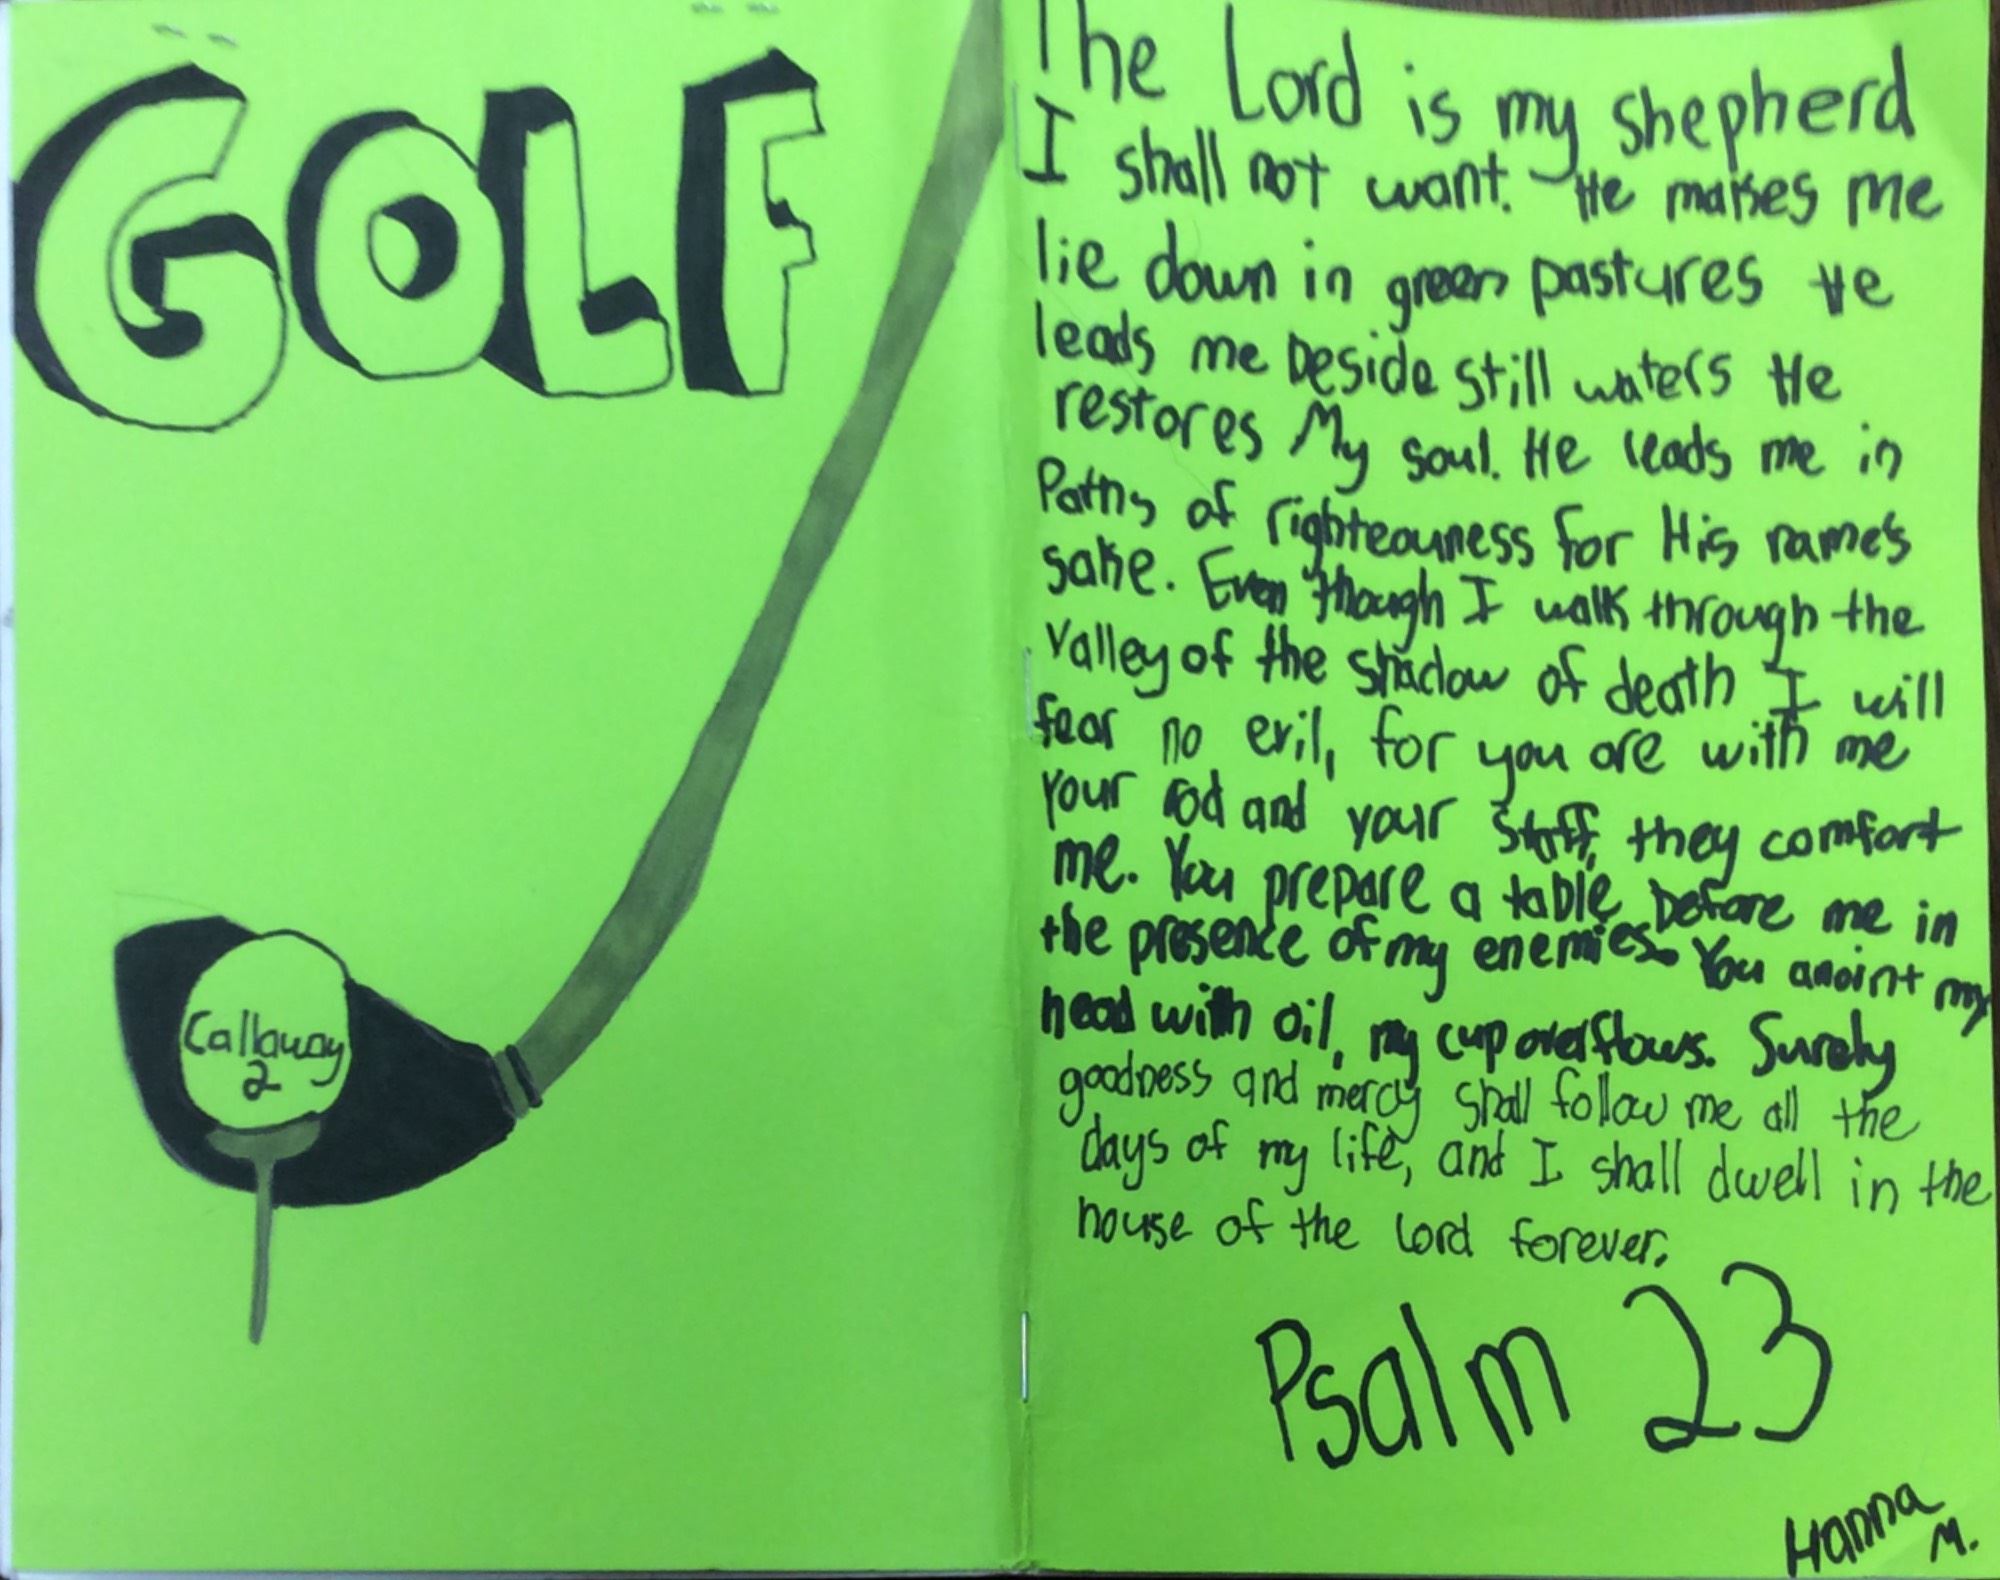 GOLF
Callaway
2
The Lord is my shepherd
I shall not want. He makes me
lie down in green pastures He
leads me beside still waters He
restores My soul. He leads me in
Paths of righteouness for His name's
sake. Even though I walk through the
Valley of the shadow of death I will
fear no evil, for you are with me
your rod and your staff, they comfort
me. You prepare a table before me in
the presence of my enemies. You anoint my
head with oil, my cup overflows. Surely
goodness and mercy shall follow me all the
days of my life, and I shall dwell in the
house of the Lord forever.
Psalm 23
Hanna
M.